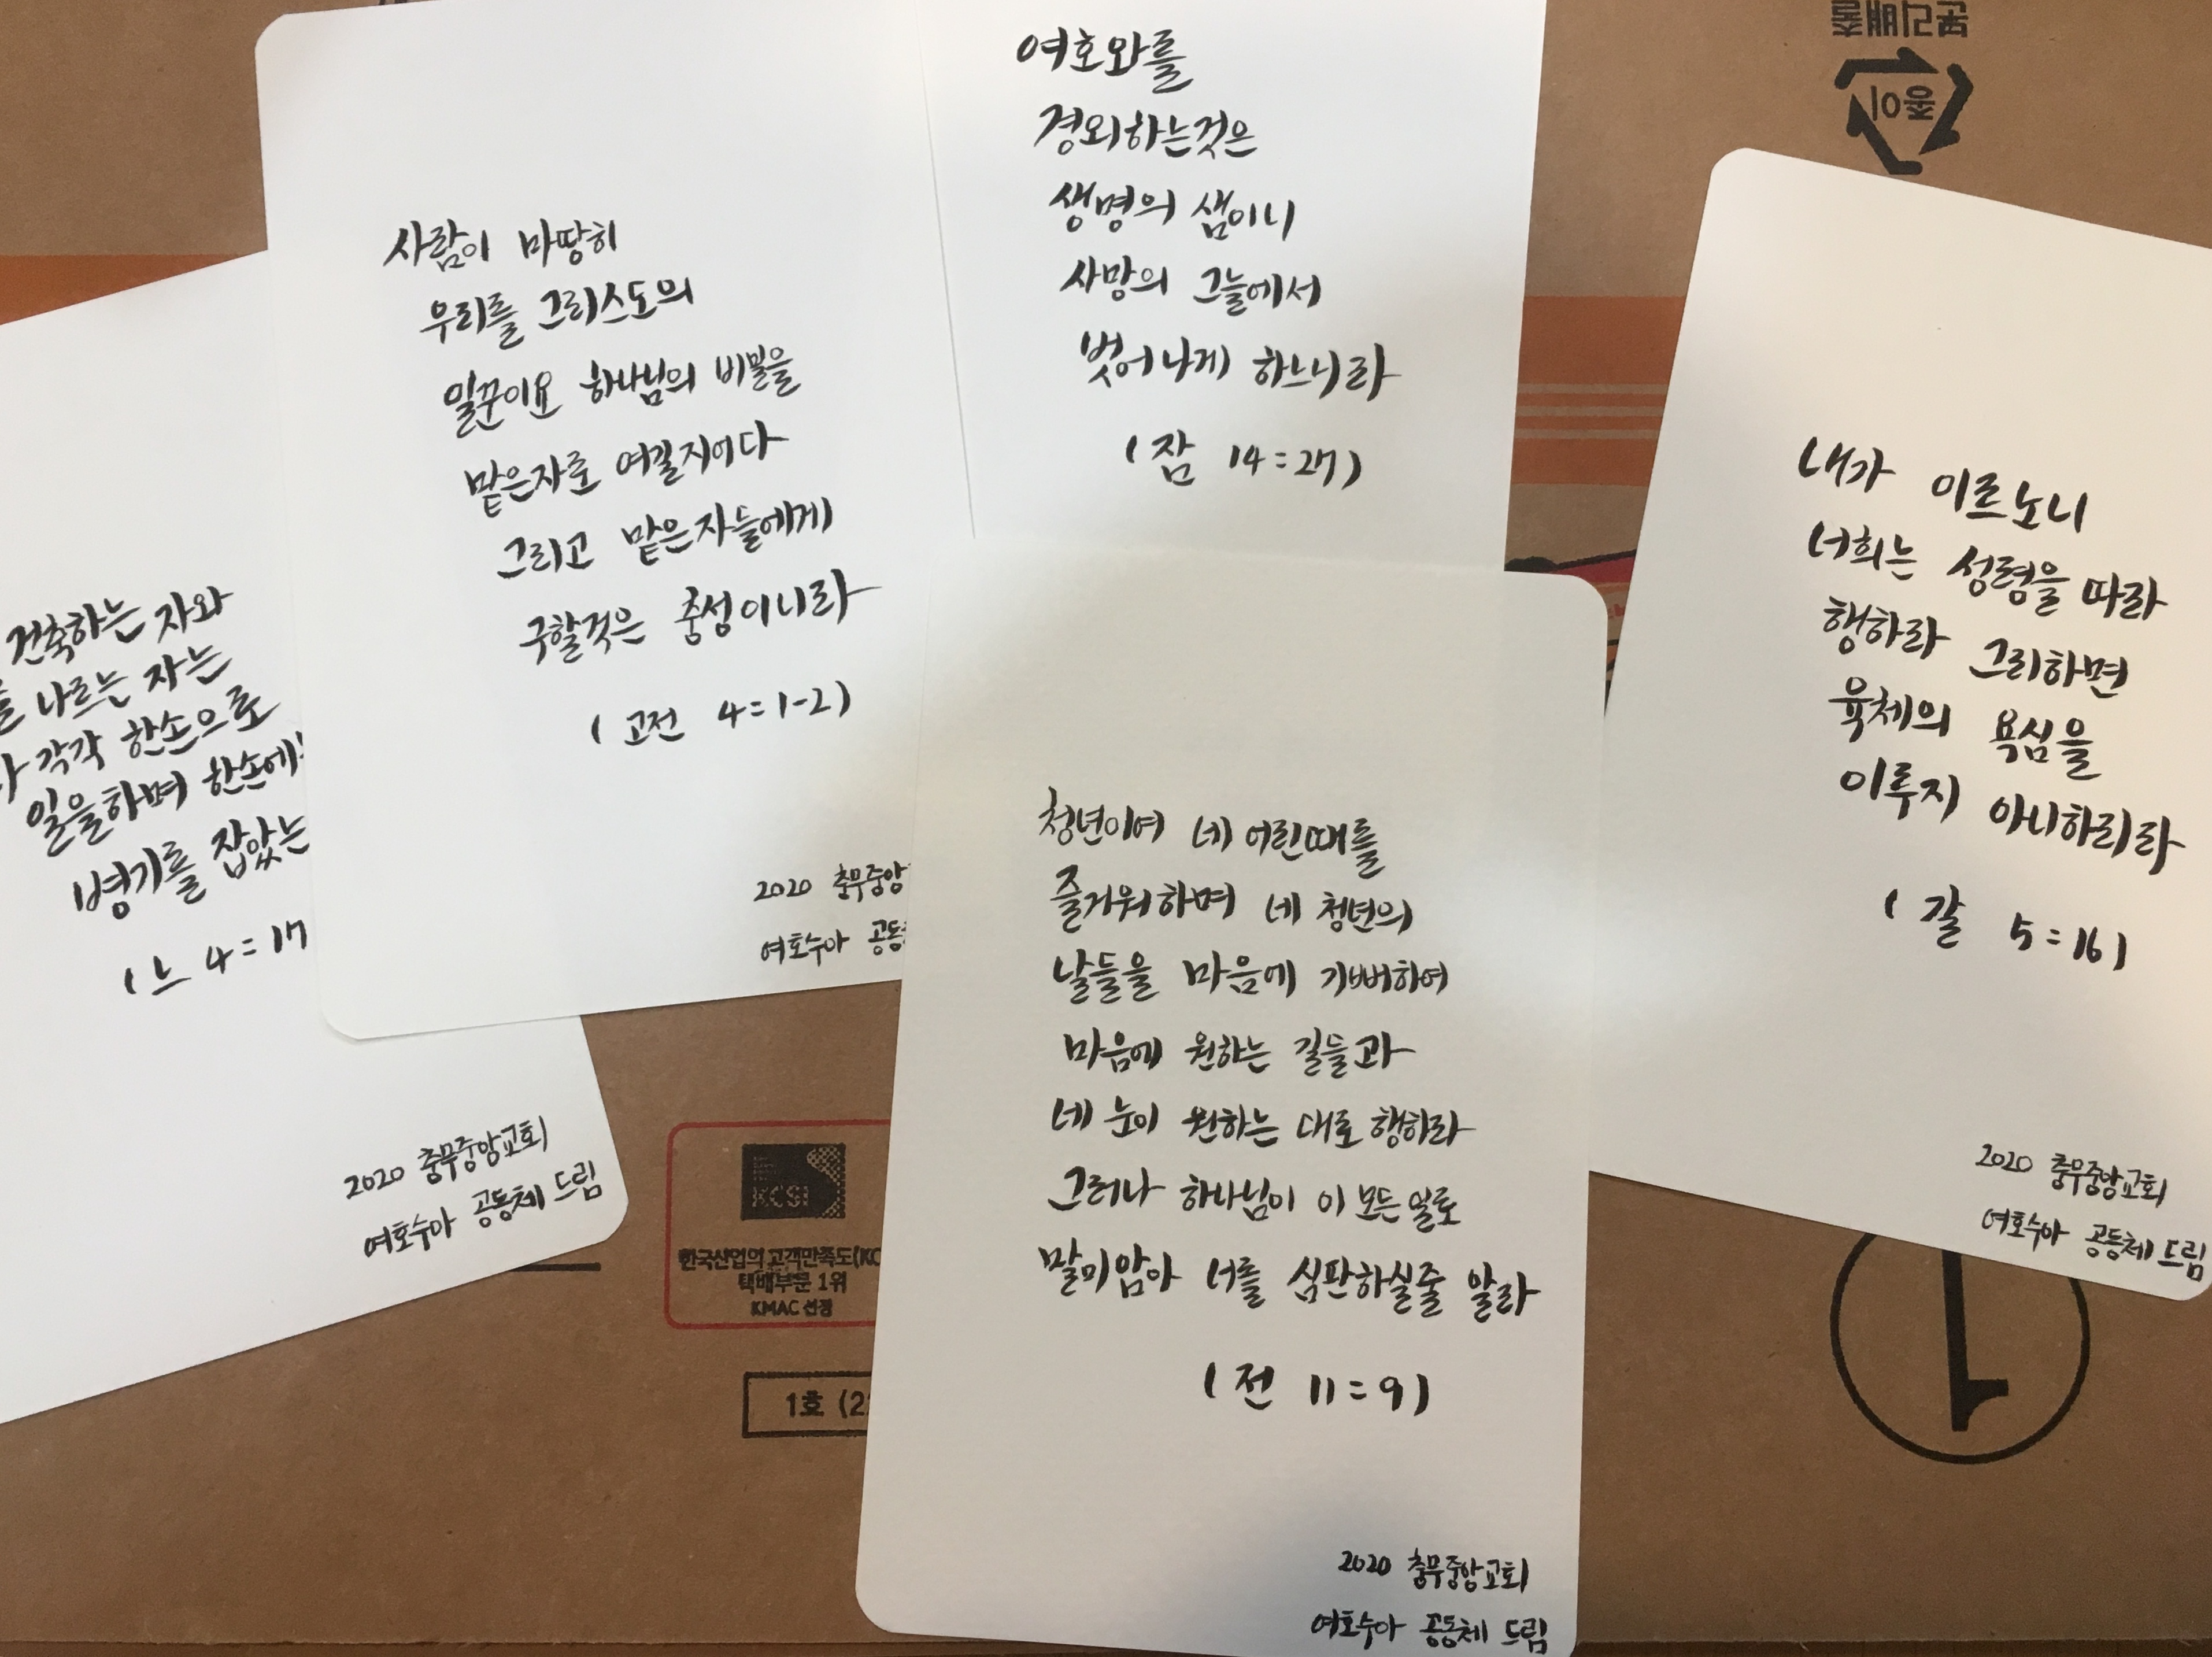 건축하는 자와
를 나르는 자는
각각 한손으로
일을하며 한손에
병기를 잡았는
(느 4=17
2020 충무중앙교회
여호수아 공동체 드림
사람이 마땅히
우리를 그리스도의
일꾼이요 하나님의 비밀을
맡은자로 여길지어다
그리고 맡은자들에게
구할것은 충성이니라
(고전 4=1-2)
2020 충무중앙
여호수아 공동
여호와를
경외하는것은
생명의 샘이니
사망의 그늘에서
벗어나게 하느니라
(잠 14=27)
청년이여 네 어린때를
즐거워하며 네 청년의
날들을 마음에 기뻐하여
마음에 원하는 길들과
네 눈이 원하는 대로 행하라
그러나 하나님이 이 모든 일로
말미암아 너를 심판하실줄 알라
(전 11=9)
2020 충무중앙교회
여호수아 공동체 드림
내가 이르노니
너희는 성령을 따라
행하라 그리하면
육체의 욕심을
이루지 아니하리라
(갈 5=16)
2020 충무중앙교회
여호수아 공동체 드림
분리배출
종이
KCSI
한국산업의 고객만족도(KC
택배부문 1위
KMAC 선정
1호 (2
1